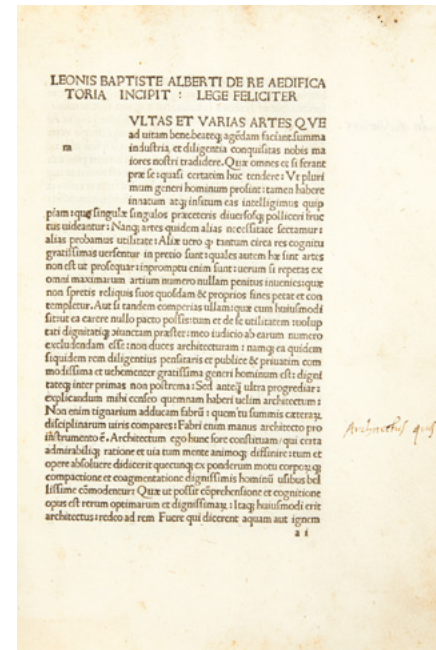 LEONIS BAPTISTE ALBERTI DE RE AEDIFICA
TORIA INCIPIT : LEGE FELICITER
VLTAS ET VARIAS ARTES QVE
ad uitam bene beateq; agēdam faciant summa
m
industria et diligentia conquisitas nobis ma
iores nostri tradidere. Quæ omnes et si ferant
præ se: quasi certatim huc tendere: Vt pluri
mum generi hominum prosint: tamen habere
innatum atq; insitum eas intelligimus quip
piam: quo singulæ singulos præ ceteris diuersosq; polliceri fruc
tus uideantur: Nanq; artes quidem alias necessitate sectamur:
alias probamus utilitate: Aliæ uero q; tantum circa res cognitu
gratissimas uersentur in pretio sunt: quales autem hæ sint artes
non est ut prosequar: inpromptu enim sunt: uerum si repetas ex
omni maximarum artium numero nullam penitus inuenies: quæ
non spretis reliquis suos quosdam & proprios fines petat et con
templetur. Aut si tandem comperias ullam: quæ cum huiusmodi
sit: ut ea carere nullo pacto possis: tum et de se utilitatem uolup
tati dignitatiq; aiunctam præstet: meo iudicio ab earum numero
excludendam esse: non duces architecturam: namq; ea quidem
siquidem rem diligentius pensitaris et publice & priuatim com
modissima et uehementer gratissima generi hominum est: digni
tateq; inter primas non postrema: Sed anteq; ultra progrediar:
explicandum mihi censeo quemnam haberi uelim architectum:
Non enim tignarium adducam fabrū: quem tu summis cæteraꝝ
disciplinarum uiris compares: Fabri enim manus architecto pro
īnstrumento ē. Architectum ego hunc fore constituam: qui certa
admirabiliq; ratione et uia tum mente animoq; diffinire: tum et
opere absoluere didicerit quecunq; ex ponderum motu corpoꝝq;
compactione et coagmentatione dignissimis hominū usibus bel
lissime cōmodentur: Quæ ut possit cōprehensione et cognitione
opus est rerum optimarum et dignissimaꝝ: Itaq; huiusmodi erit
architectus: redeo ad rem Fuere qui dicerent aquam aut ignem
a i
Architectus quis